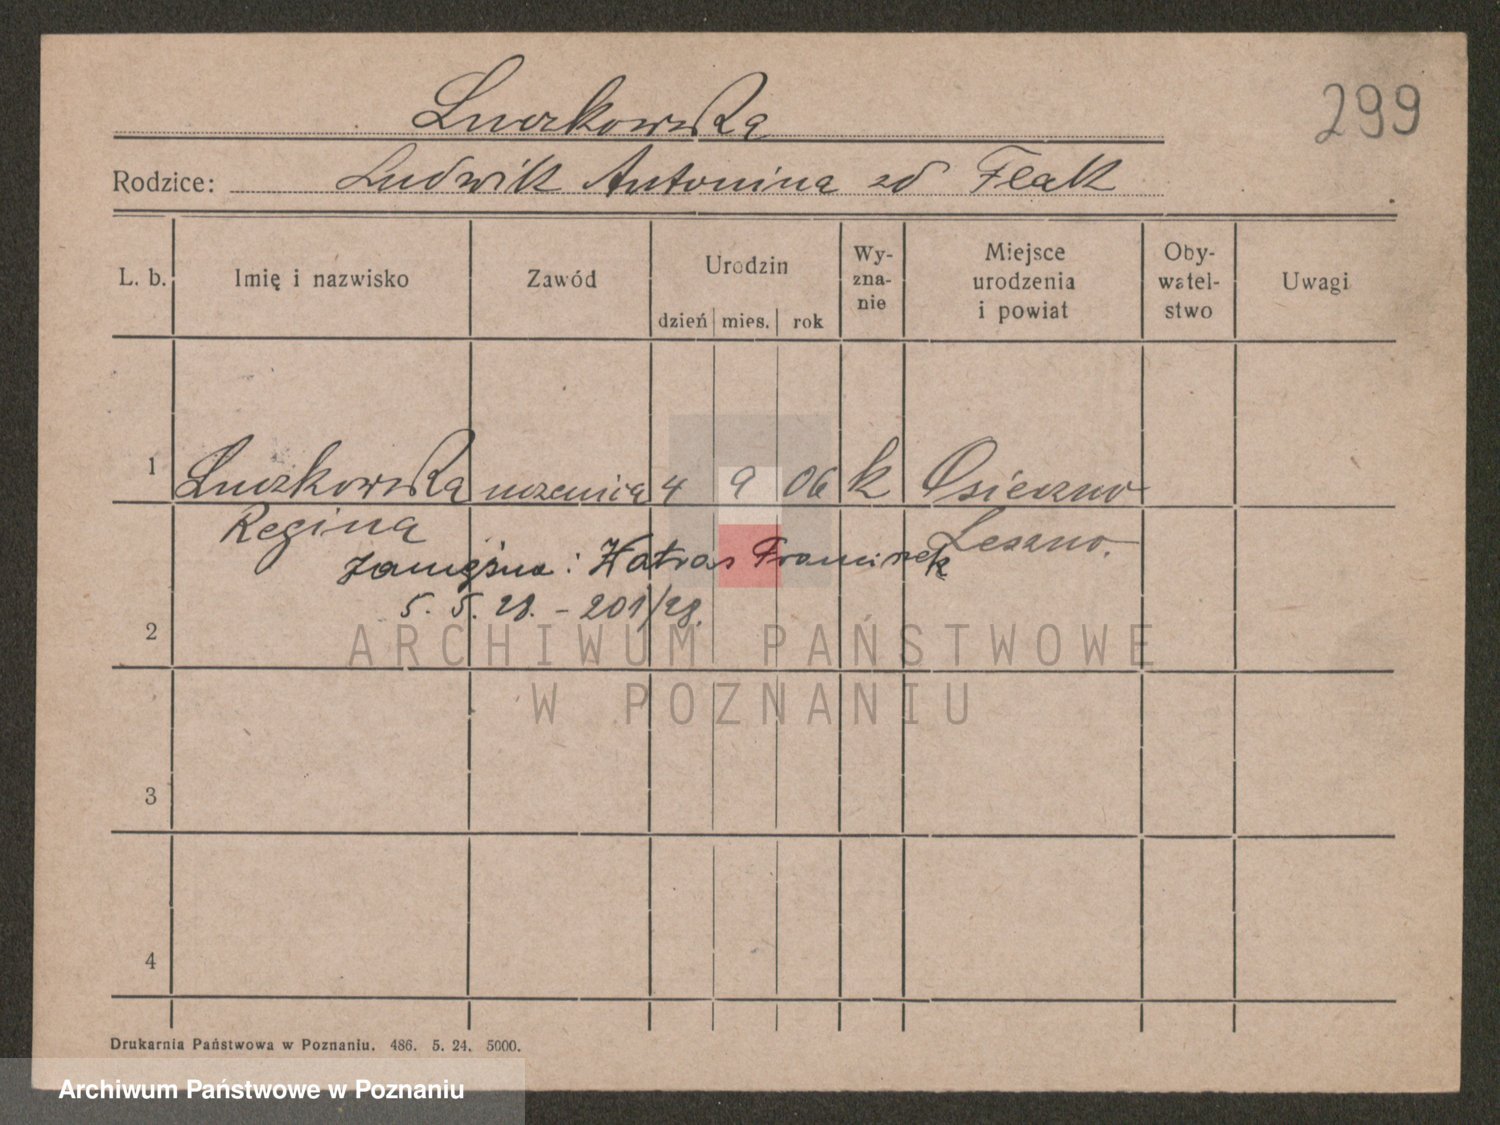 299
Luczkowska
Rodzice: Ludwik Antonina zd Flak
L. b. Imię i nazwisko Zawód Urodzin dzień mies. rok Wy-zna-nie Miejsce urodzenia i powiat Oby-watel-stwo Uwagi
1 Luczkowska uczenica 4 9 06 k Osieczno
Regina Leszno.
zamężna: Katras Franciszek
5. 5. 28. - 201/28.
2
ARCHIWUM PAŃSTWOWE
W POZNANIU
3
4
Drukarnia Państwowa w Poznaniu. 486. 5. 24. 5000.
Archiwum Państwowe w Poznaniu